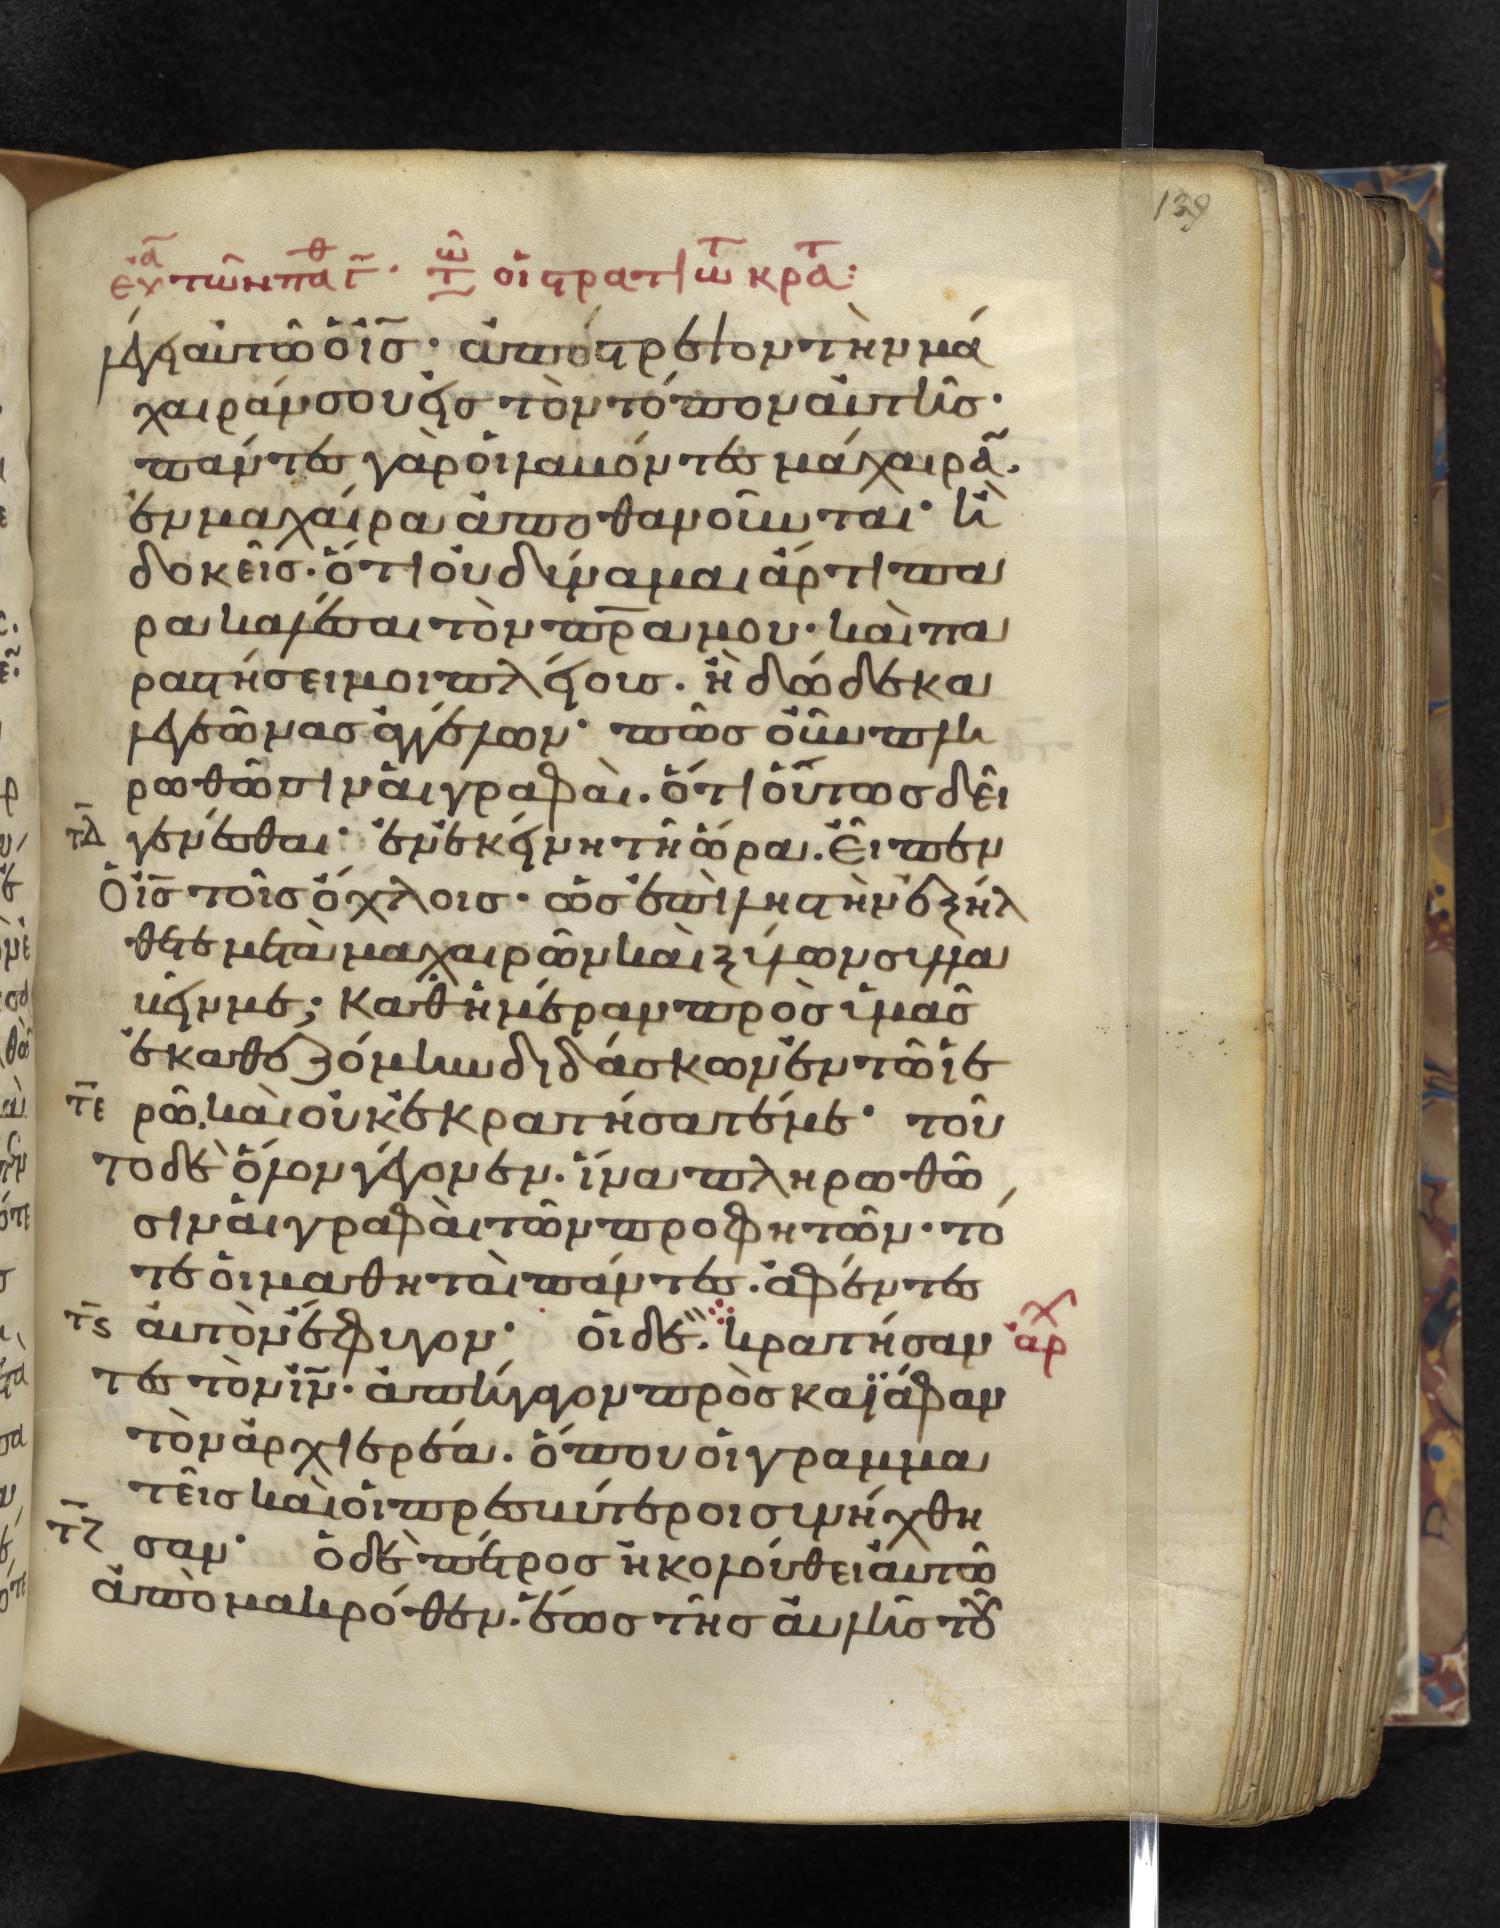 139
εὐα τῶν παθ γ̅· τῶ οἱ στρατιῶτ κρατ:
λέγει αὐτῶ ὁ ἰ̅σ̅· ἀπόστρεψον τὴν μά
χαιράν σου εἰς τὸν τόπον αὐτῆς·
πάντες γὰρ οἱ λαβόντες μάχαιραν.
ἐν μαχαίρα ἀποθανοῦνται· ἢ
δοκεῖς. ὅτι οὐ δύναμαι ἄρτι πα
ρακαλέσαι τὸν π̅ρ̅α μου· καὶ πα
ραστήσει μοι πλείους. ἢ δώδεκα
λεγεῶνας ἀγγέλων· πῶς οὖν πλη
ρωθῶσιν ἁι γραφαὶ. ὅτι οὕτως δεῖ
τ̅δ̅ γενέσθαι· ἐν ἐκείνη τῆ ὥρα. εἶπεν
ὁ ἰ̅σ̅ τοῖς ὄχλοις· ὡς ἐπὶ ληστὴν ἐξήλ
θετε μετὰ μαχαιρῶν καὶ ξύλων συλλα
βεῖν με; καθ ἡμέραν πρὸς ὑμᾶς
ἐκαθεζόμην διδάσκων ἐν τῶ ἱε
τ̅ε̅ ρῶ. καὶ οὐκ ἐκρατήσατέ με· τοῦ
το δὲ ὅλον γέγονεν. ἵνα πληρωθῶ
σιν ἁι γραφαὶ τῶν προφητῶν· τό
τε οἱ μαθηταὶ πάντες. ἀφέντες
τ̅ς̅ αὐτὸν ἔφυγον· οἱ δὲ. κρατήσαν ἀρχ
τες τὸν ἰ̅ν̅· ἀπήγαγον πρὸς καϊάφαν
τὸν ἀρχιερέα. ὅπου οἱ γραμμα
τεῖς καὶ οἱ πρεσβύτεροι συνήχθη
τ̅ζ̅ σαν· ὁ δὲ πέτρος ἠκολούθει αὐτῶ
ἀπὸ μακρόθεν. ἕως τῆς αὐλῆς τοῦ